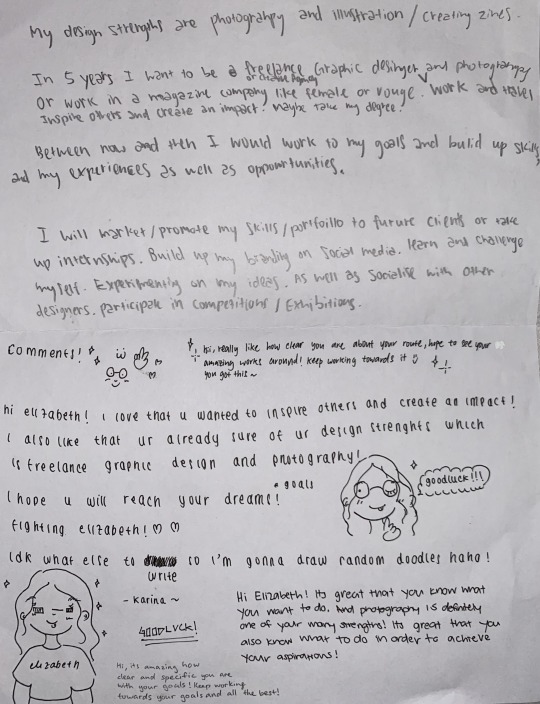 My design strengths are photograhpy and Illustration / creating zines.
In 5 years I want to be a freelance Graphic desinger and photography
or Creative Agency
Or work in a magazine company like female or vouge. Work and travel
Inspire others and create an impact. Maybe take my degree.
Between now and then I would work to my goals and build up skills,
and my experiences as well as opportunities.
I will market/promote my skills/portfoilo to furure clients or take
up internships. Build up my branding on Social media. learn and challenge
myself. Experimenting on my ideas. As well as Socialise with other
designers. participate in competitions / Exhibitions.
Comments!
hi, really like how clear you are about your route, hope to see your
amazing works around! keep working towards it
you got this ~
hi elizabeth! i love that u wanted to inspire others and create an impact!
i also like that ur already sure of ur design strenghts which
is freelance graphic design and photography!
goals
I hope u will reach your dreams!
goodluck!!!
fighting elizabeth! ♡ ♡
Idk what else to so I'm gonna draw random doodles haha!
write
- Karina ~
GOODLUCK!
elizabeth
Hi Elizabeth! Its great that you know what
you want to do. And photography is definitely
one of your many strengths! Its great that you
also know what to do in order to achieve
your aspirations!
Hi, its amazing how
clear and specific you are
with your goals! Keep working
towards your goals and all the best!